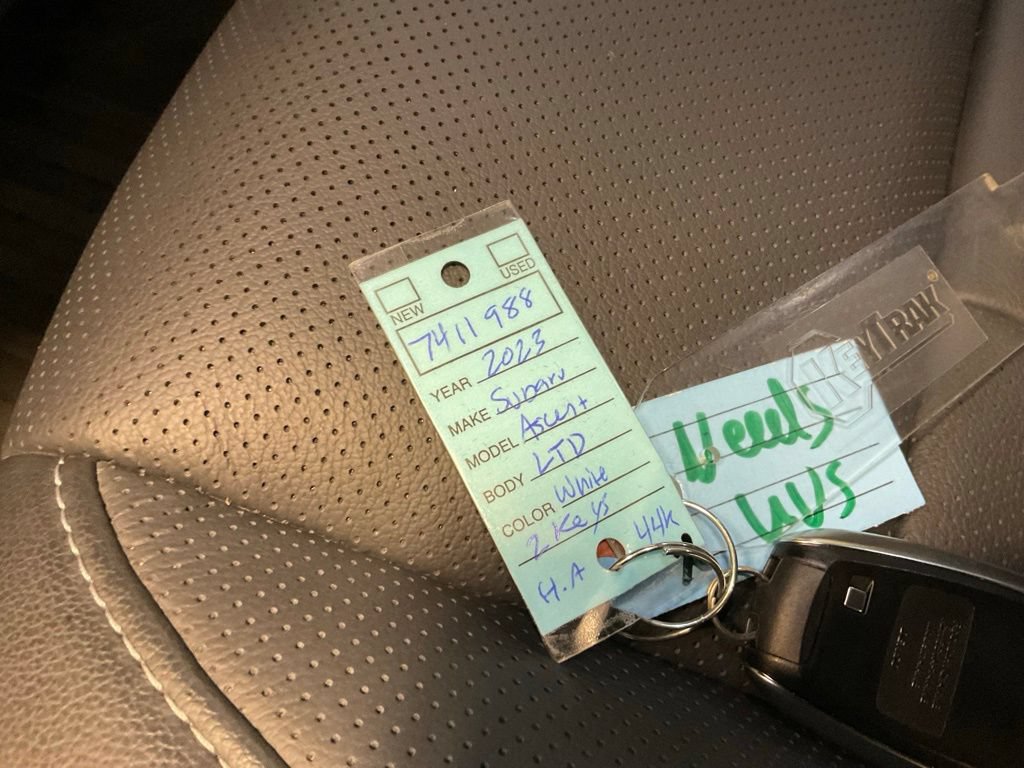 NEW
USED
7411988
YEAR 2023
MAKE Subaru
MODEL Ascent
BODY LTD
COLOR White
2 Keys
44K
H.A
KEYTRAK
Needs
UVS